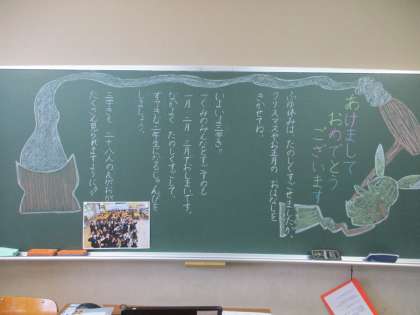 あけまして
おめでとう
ございます
ふゆ休みは たのしくすごせましたか。
クリスマスやお正月の おはなしを
きかせてね。
いよいよ三学き。
くみのみんなとすごすのも
一月 二月 三月でおしまいです。
なかよく たのしくすごして、
すてきな二年生になるじゅんびを
しましょう。
三学きも 二十八人の
たくさん見られますように